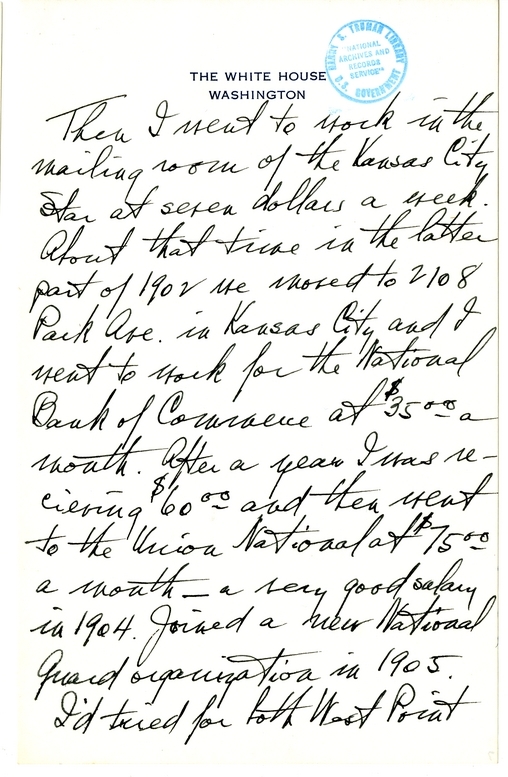 HARRY S. TRUMAN LIBRARY
"NATIONAL
ARCHIVES AND
RECORDS
SERVICE"
U.S. GOVERNMENT
THE WHITE HOUSE
WASHINGTON
Then I went to work in the
mailing room of the Kansas City
Star at seven dollars a week.
About that time in the latter
part of 1902 we moved to 2108
Park Ave. in Kansas City and I
went to work for the National
Bank of Commerce at $35 00 a
month. After a year I was re-
cieving $60 00 and then went
to the Union National at $75 00
a month — a very good salary
in 1904. Joined a new National
Guard organization in 1905.
I'd tried for both West Point